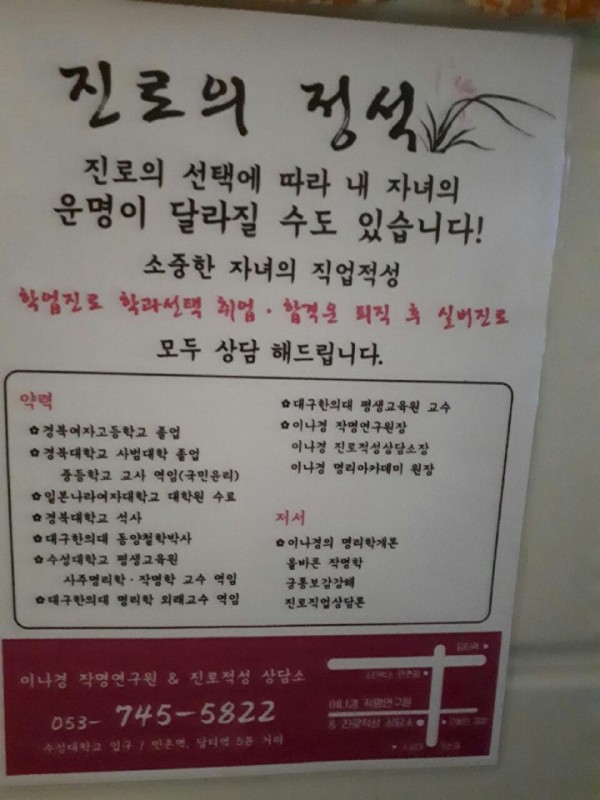 진로의 정석
진로의 선택에 따라 내 자녀의
운명이 달라질 수도 있습니다!
소중한 자녀의 직업적성
학업진로 학과선택 취업·합격운 퇴직 후 실버진로
모두 상담 해드립니다.
약력
✿경북여자고등학교 졸업
✿경북대학교 사범대학 졸업
중등학교 교사 역임(국민윤리)
✿일본나라여자대학교 대학원 수료
✿경북대학교 석사
✿대구한의대 동양철학박사
✿수성대학교 평생교육원
사주명리학·작명학 교수 역임
✿대구한의대 명리학 외래교수 역임
✿대구한의대 평생교육원 교수
✿이나경 작명연구원장
이나경 진로적성상담소장
이나경 명리아카데미 원장
저서
✿이나경의 명리학개론
올바른 작명학
궁통보감강해
진로직업상담론
이나경 작명연구원 & 진로적성 상담소
053- 745-5822
수성대학교 입구 / 만촌역, 담티역 5분 거리
담티역 ▶
스타벅스 만촌점
이나경 작명연구원
& 진로적성 상담소